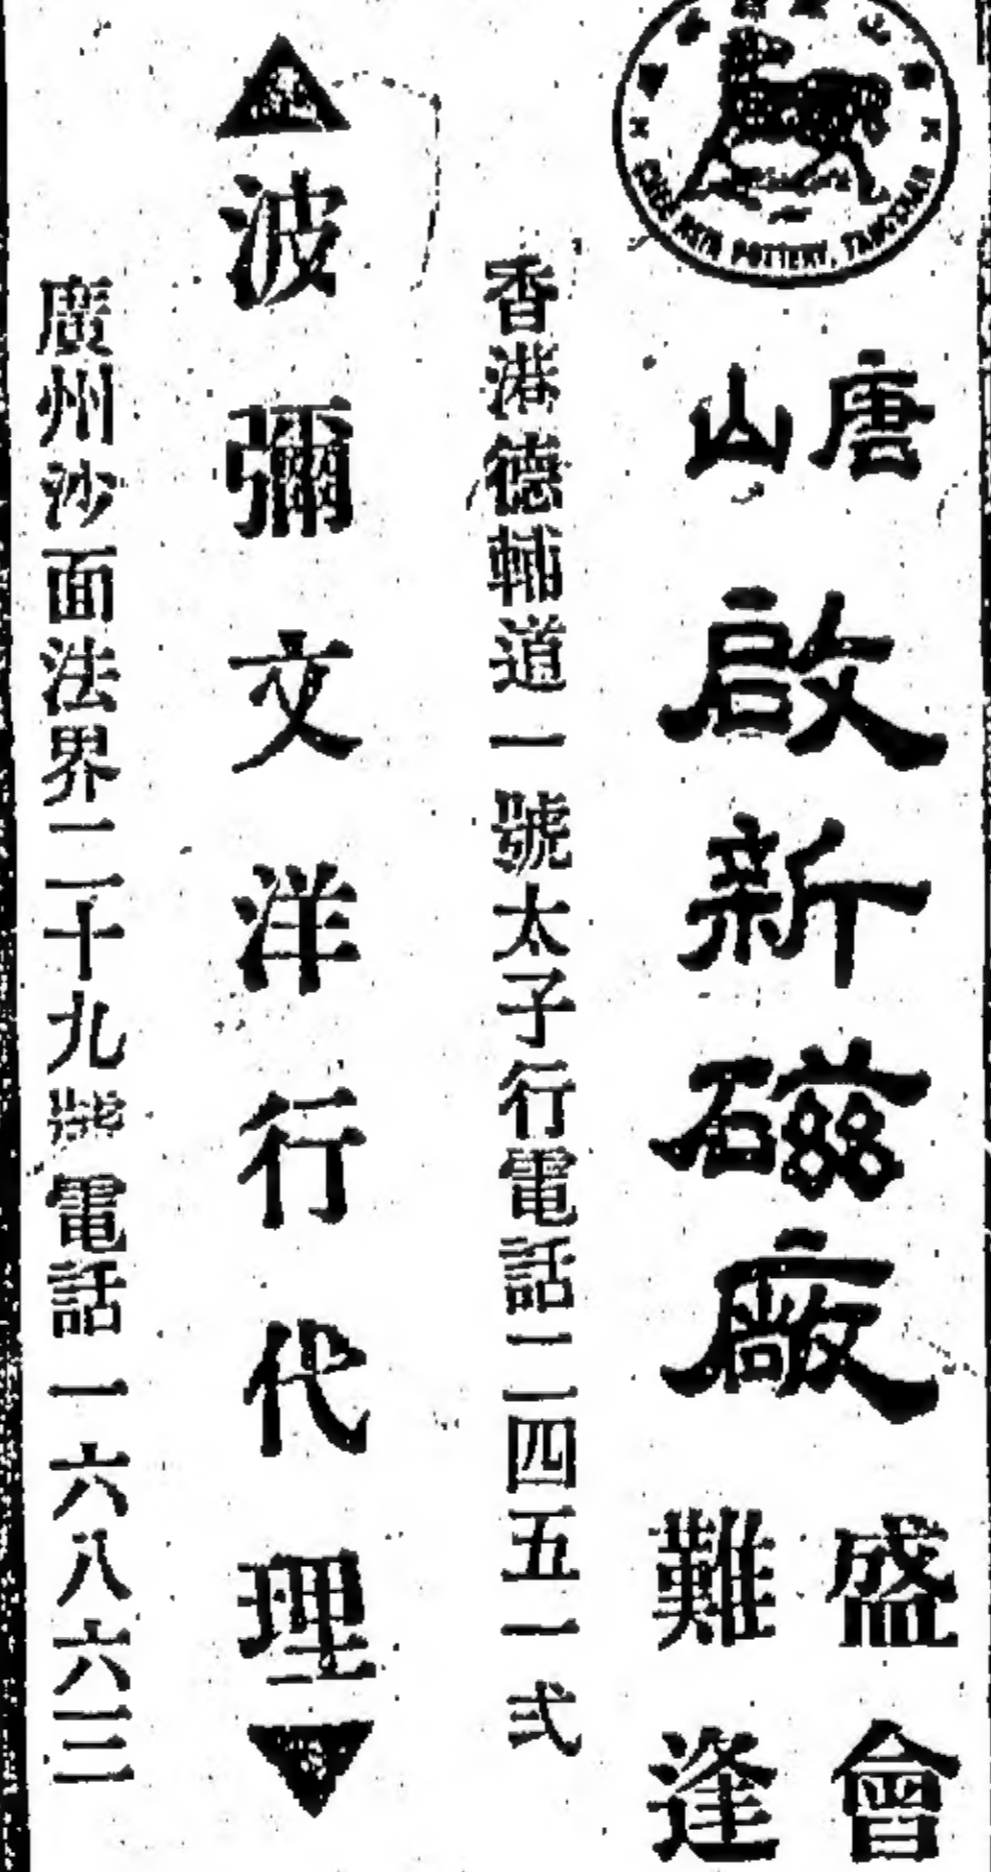 CHEE HSIN POTTERY, TANGSHAN
唐山
啟新磁廠
盛會
難逢
香港德輔道一號太子行電話二四五一弍
波彌文洋行代理
廣州沙面法界二十九號電話一六八六三